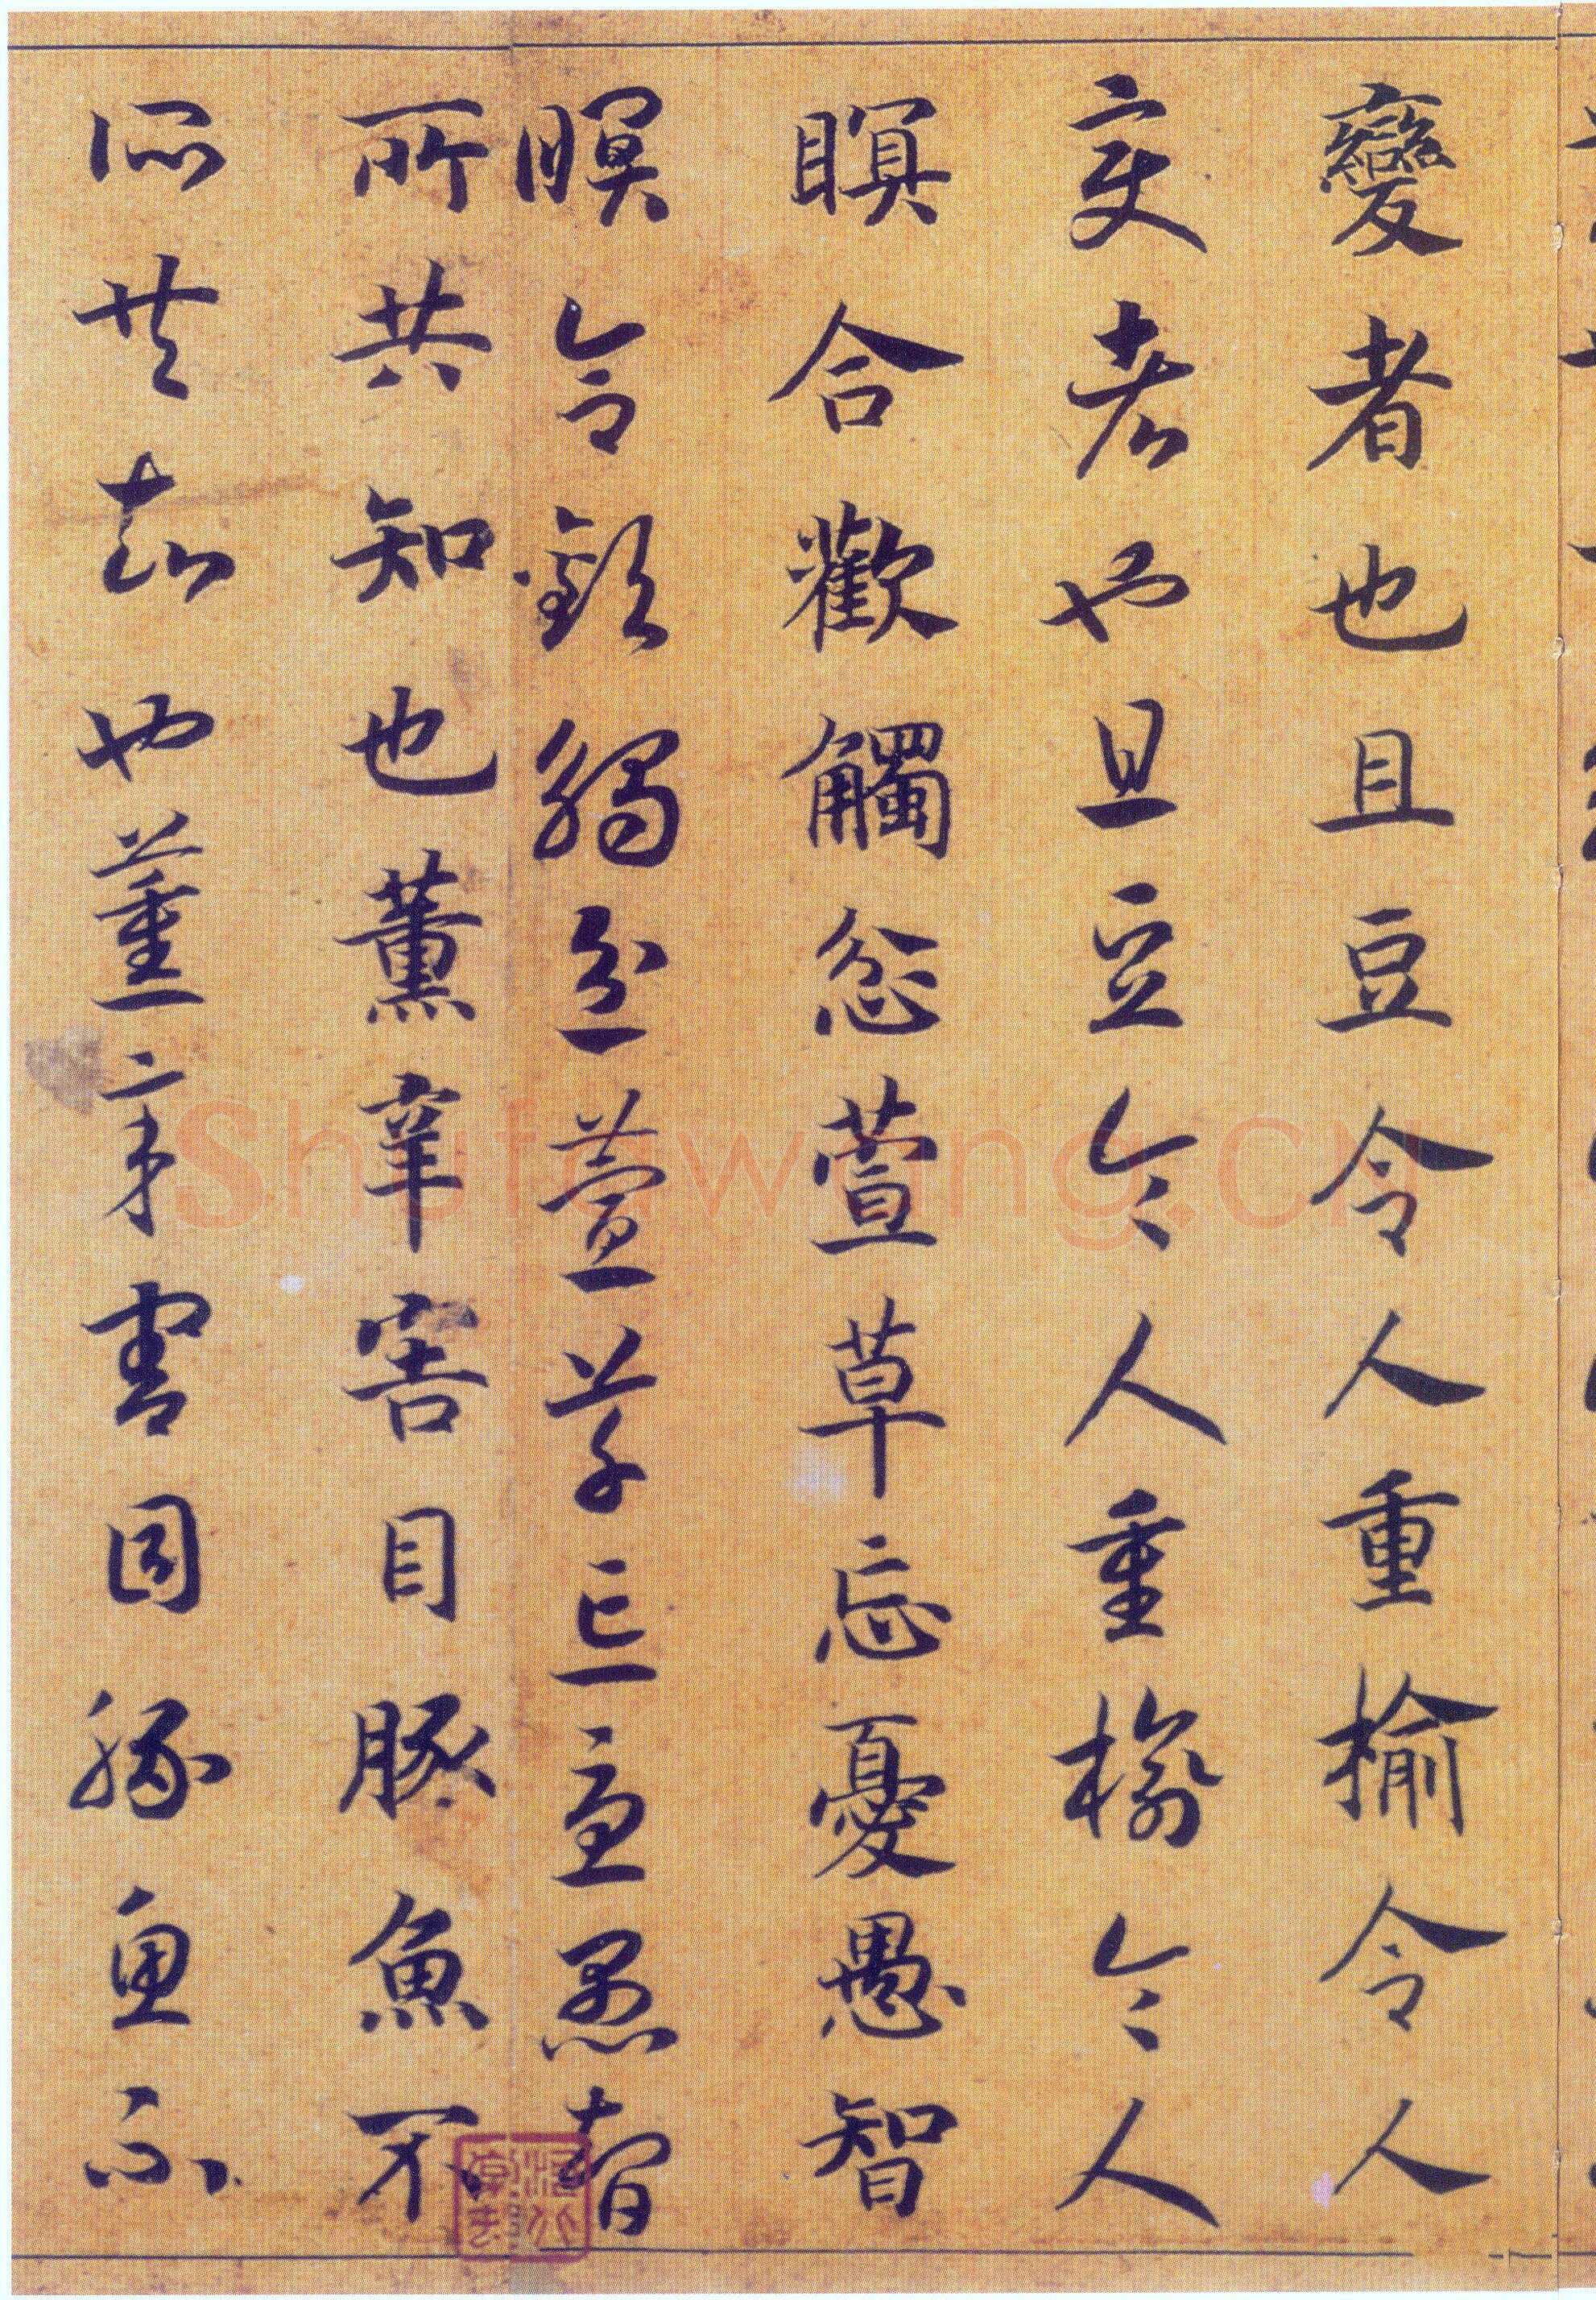 變者也且豆令人重榆令人
變者也且豆令人重榆令人
瞑合歡觸忿萱草忘憂愚智
瞑合歡觸忿萱草忘憂愚智
所共知也薰辛害目豚魚不
所共知也薰辛害目豚魚不
Shufawang.cn